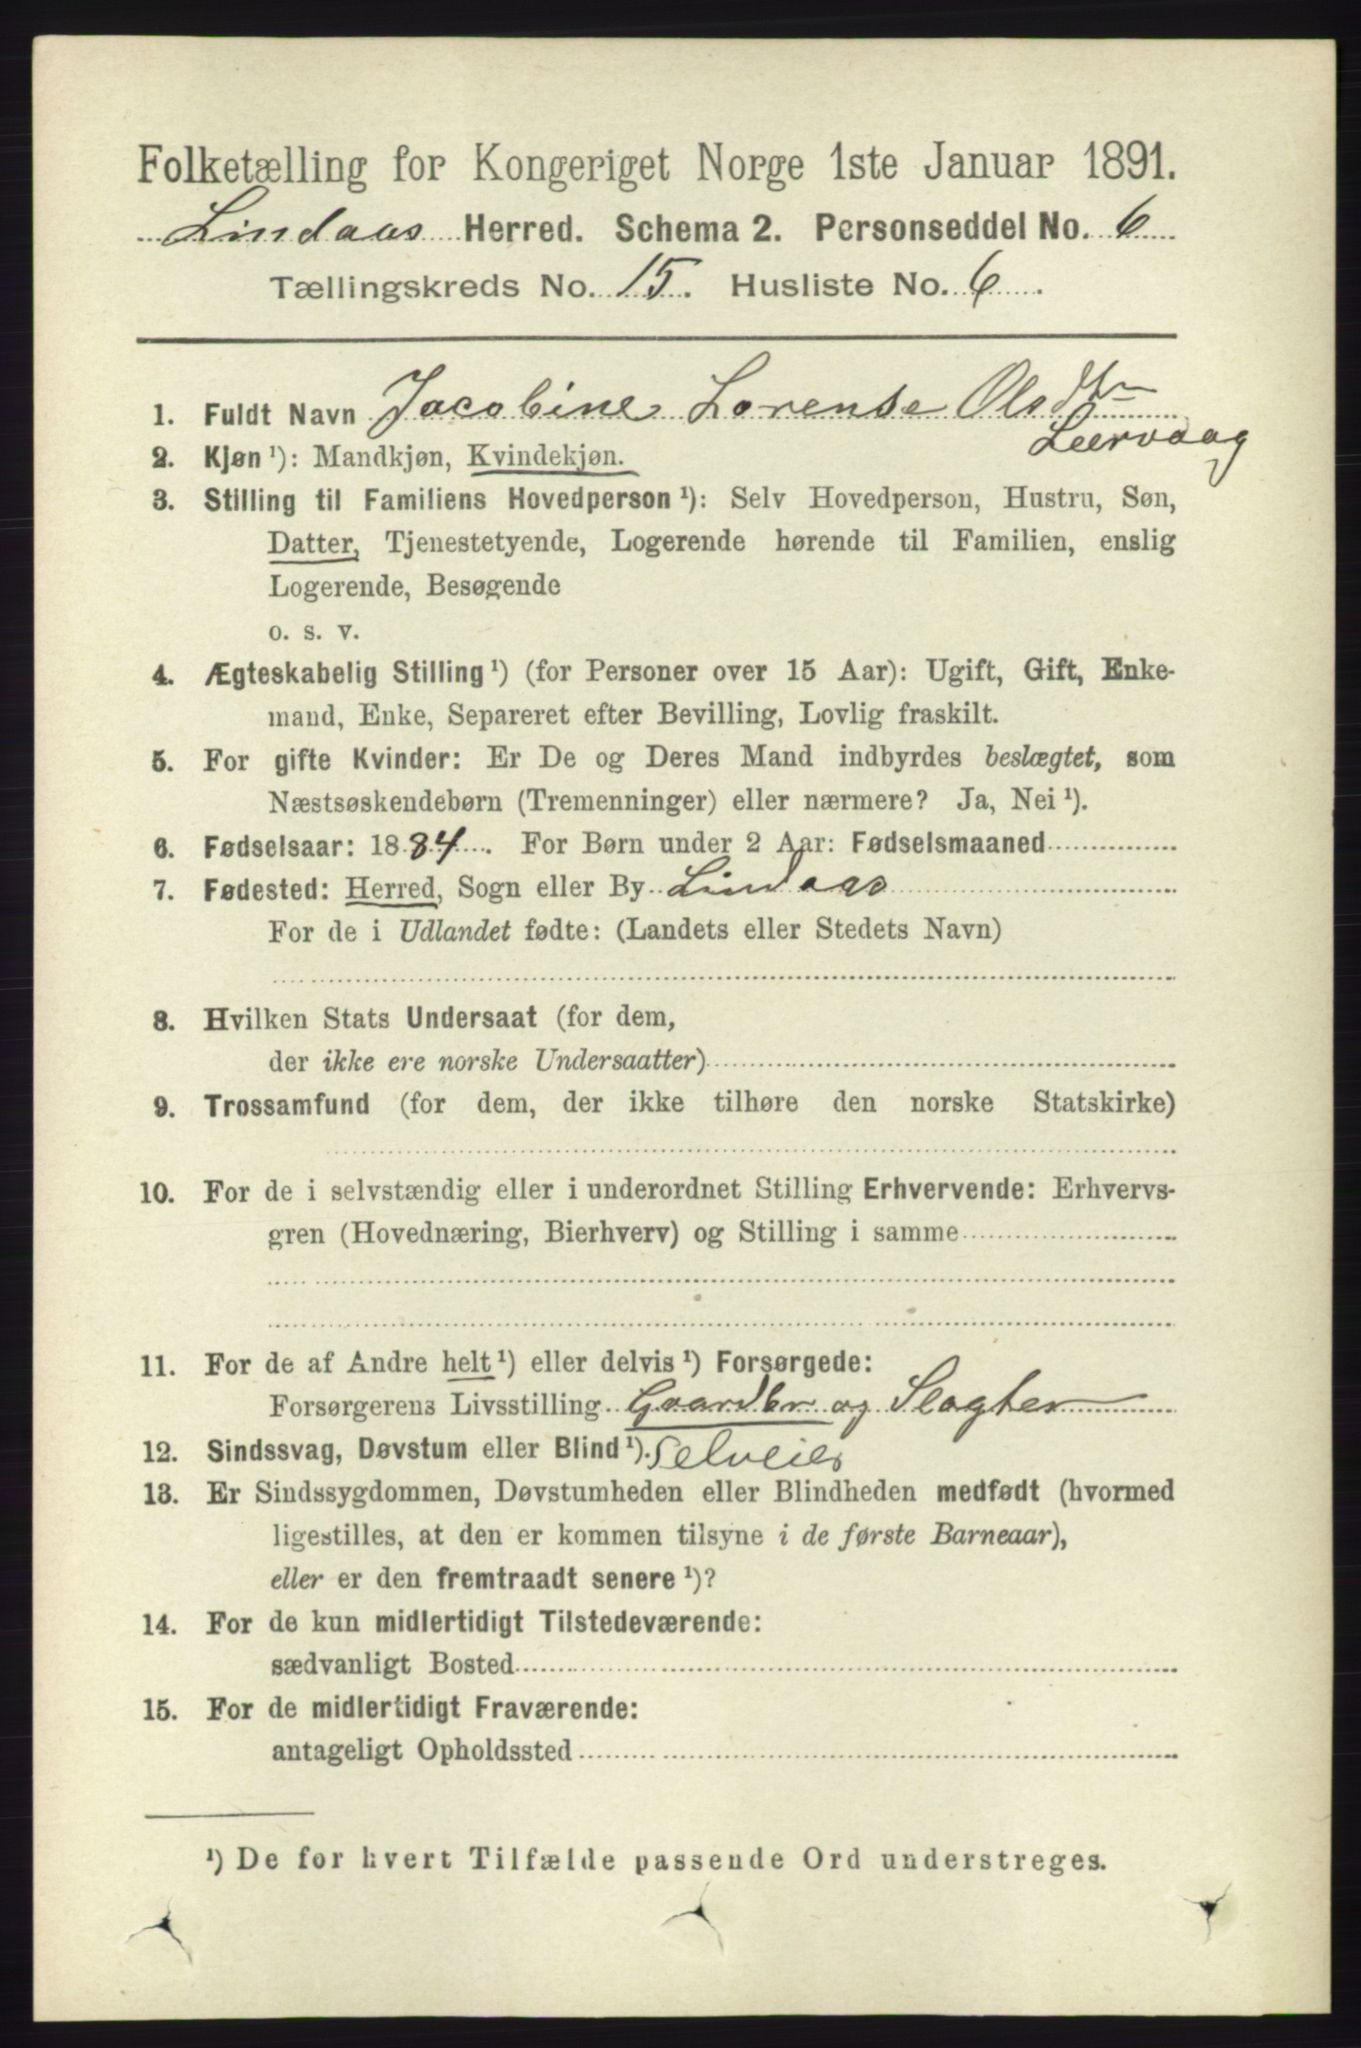 Folketælling for Kongeriget Norge 1ste Januar 1891.
Lindaas Herred. Schema 2. Personseddel No. 6
Tællingskreds No. 15. Husliste No. 6.
1. Fuldt Navn Jacobine Lorense Olsdtr
Leervaag
2. Kjøn ¹): Mandkjøn, Kvindekjøn.
3. Stilling til Familiens Hovedperson ¹): Selv Hovedperson, Hustru, Søn,
Datter, Tjenestetyende, Logerende hørende til Familien, enslig
Logerende, Besøgende
o. s. v.
4. Ægteskabelig Stilling ¹) (for Personer over 15 Aar): Ugift, Gift, Enke-
mand, Enke, Separeret efter Bevilling, Lovlig fraskilt.
5. For gifte Kvinder: Er De og Deres Mand indbyrdes beslægtet, som
Næstsøskendebørn (Tremenninger) eller nærmere? Ja, Nei ¹).
6. Fødselsaar: 1884. For Børn under 2 Aar: Fødselsmaaned
7. Fødested: Herred, Sogn eller By Lindaas
For de i Udlandet fødte: (Landets eller Stedets Navn)
8. Hvilken Stats Undersaat (for dem,
der ikke ere norske Undersaatter)
9. Trossamfund (for dem, der ikke tilhøre den norske Statskirke)
10. For de i selvstændig eller i underordnet Stilling Erhvervende: Erhvervs-
gren (Hovednæring, Bierhverv) og Stilling i samme
11. For de af Andre helt ¹) eller delvis ¹) Forsørgede:
Forsørgerens Livsstilling Gaardbr og Slagter
12. Sindssvag, Døvstum eller Blind ¹). Selveier
13. Er Sindssygdommen, Døvstumheden eller Blindheden medfødt (hvormed
ligestilles, at den er kommen tilsyne i de første Barneaar),
eller er den fremtraadt senere ¹)?
14. For de kun midlertidigt Tilstedeværende:
sædvanligt Bosted
15. For de midlertidigt Fraværende:
antageligt Opholdssted
¹) De for hvert Tilfælde passende Ord understreges.